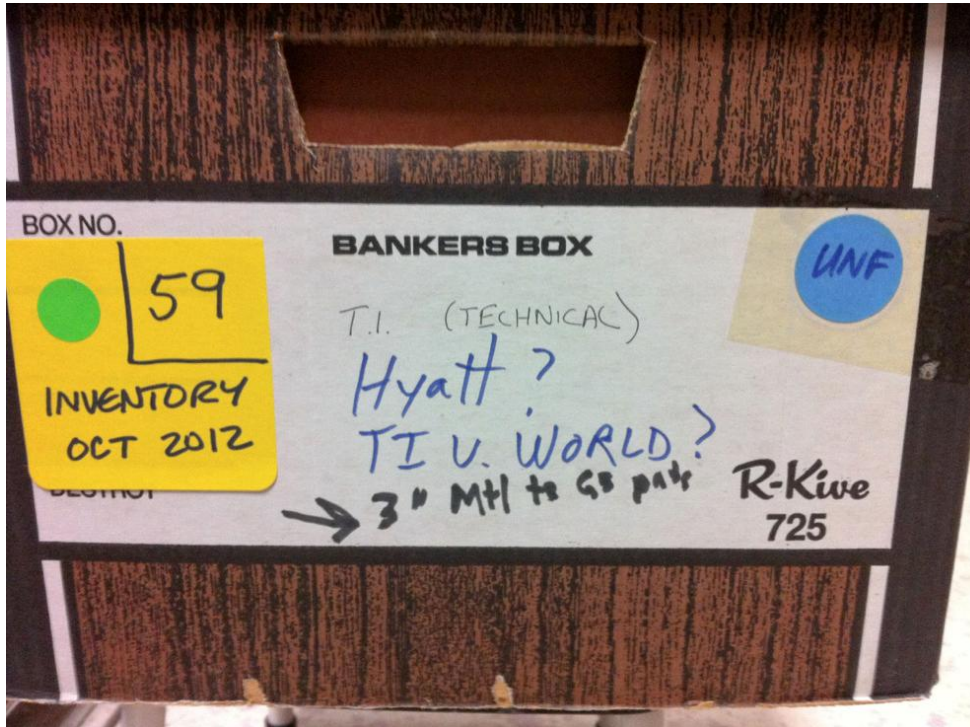 BOX NO.
59
INVENTORY
OCT 2012
BANKERS BOX
T.I. (TECHNICAL)
Hyatt?
TI V. WORLD?
3" Mtl to GB pats
R-Kive
725
UNF